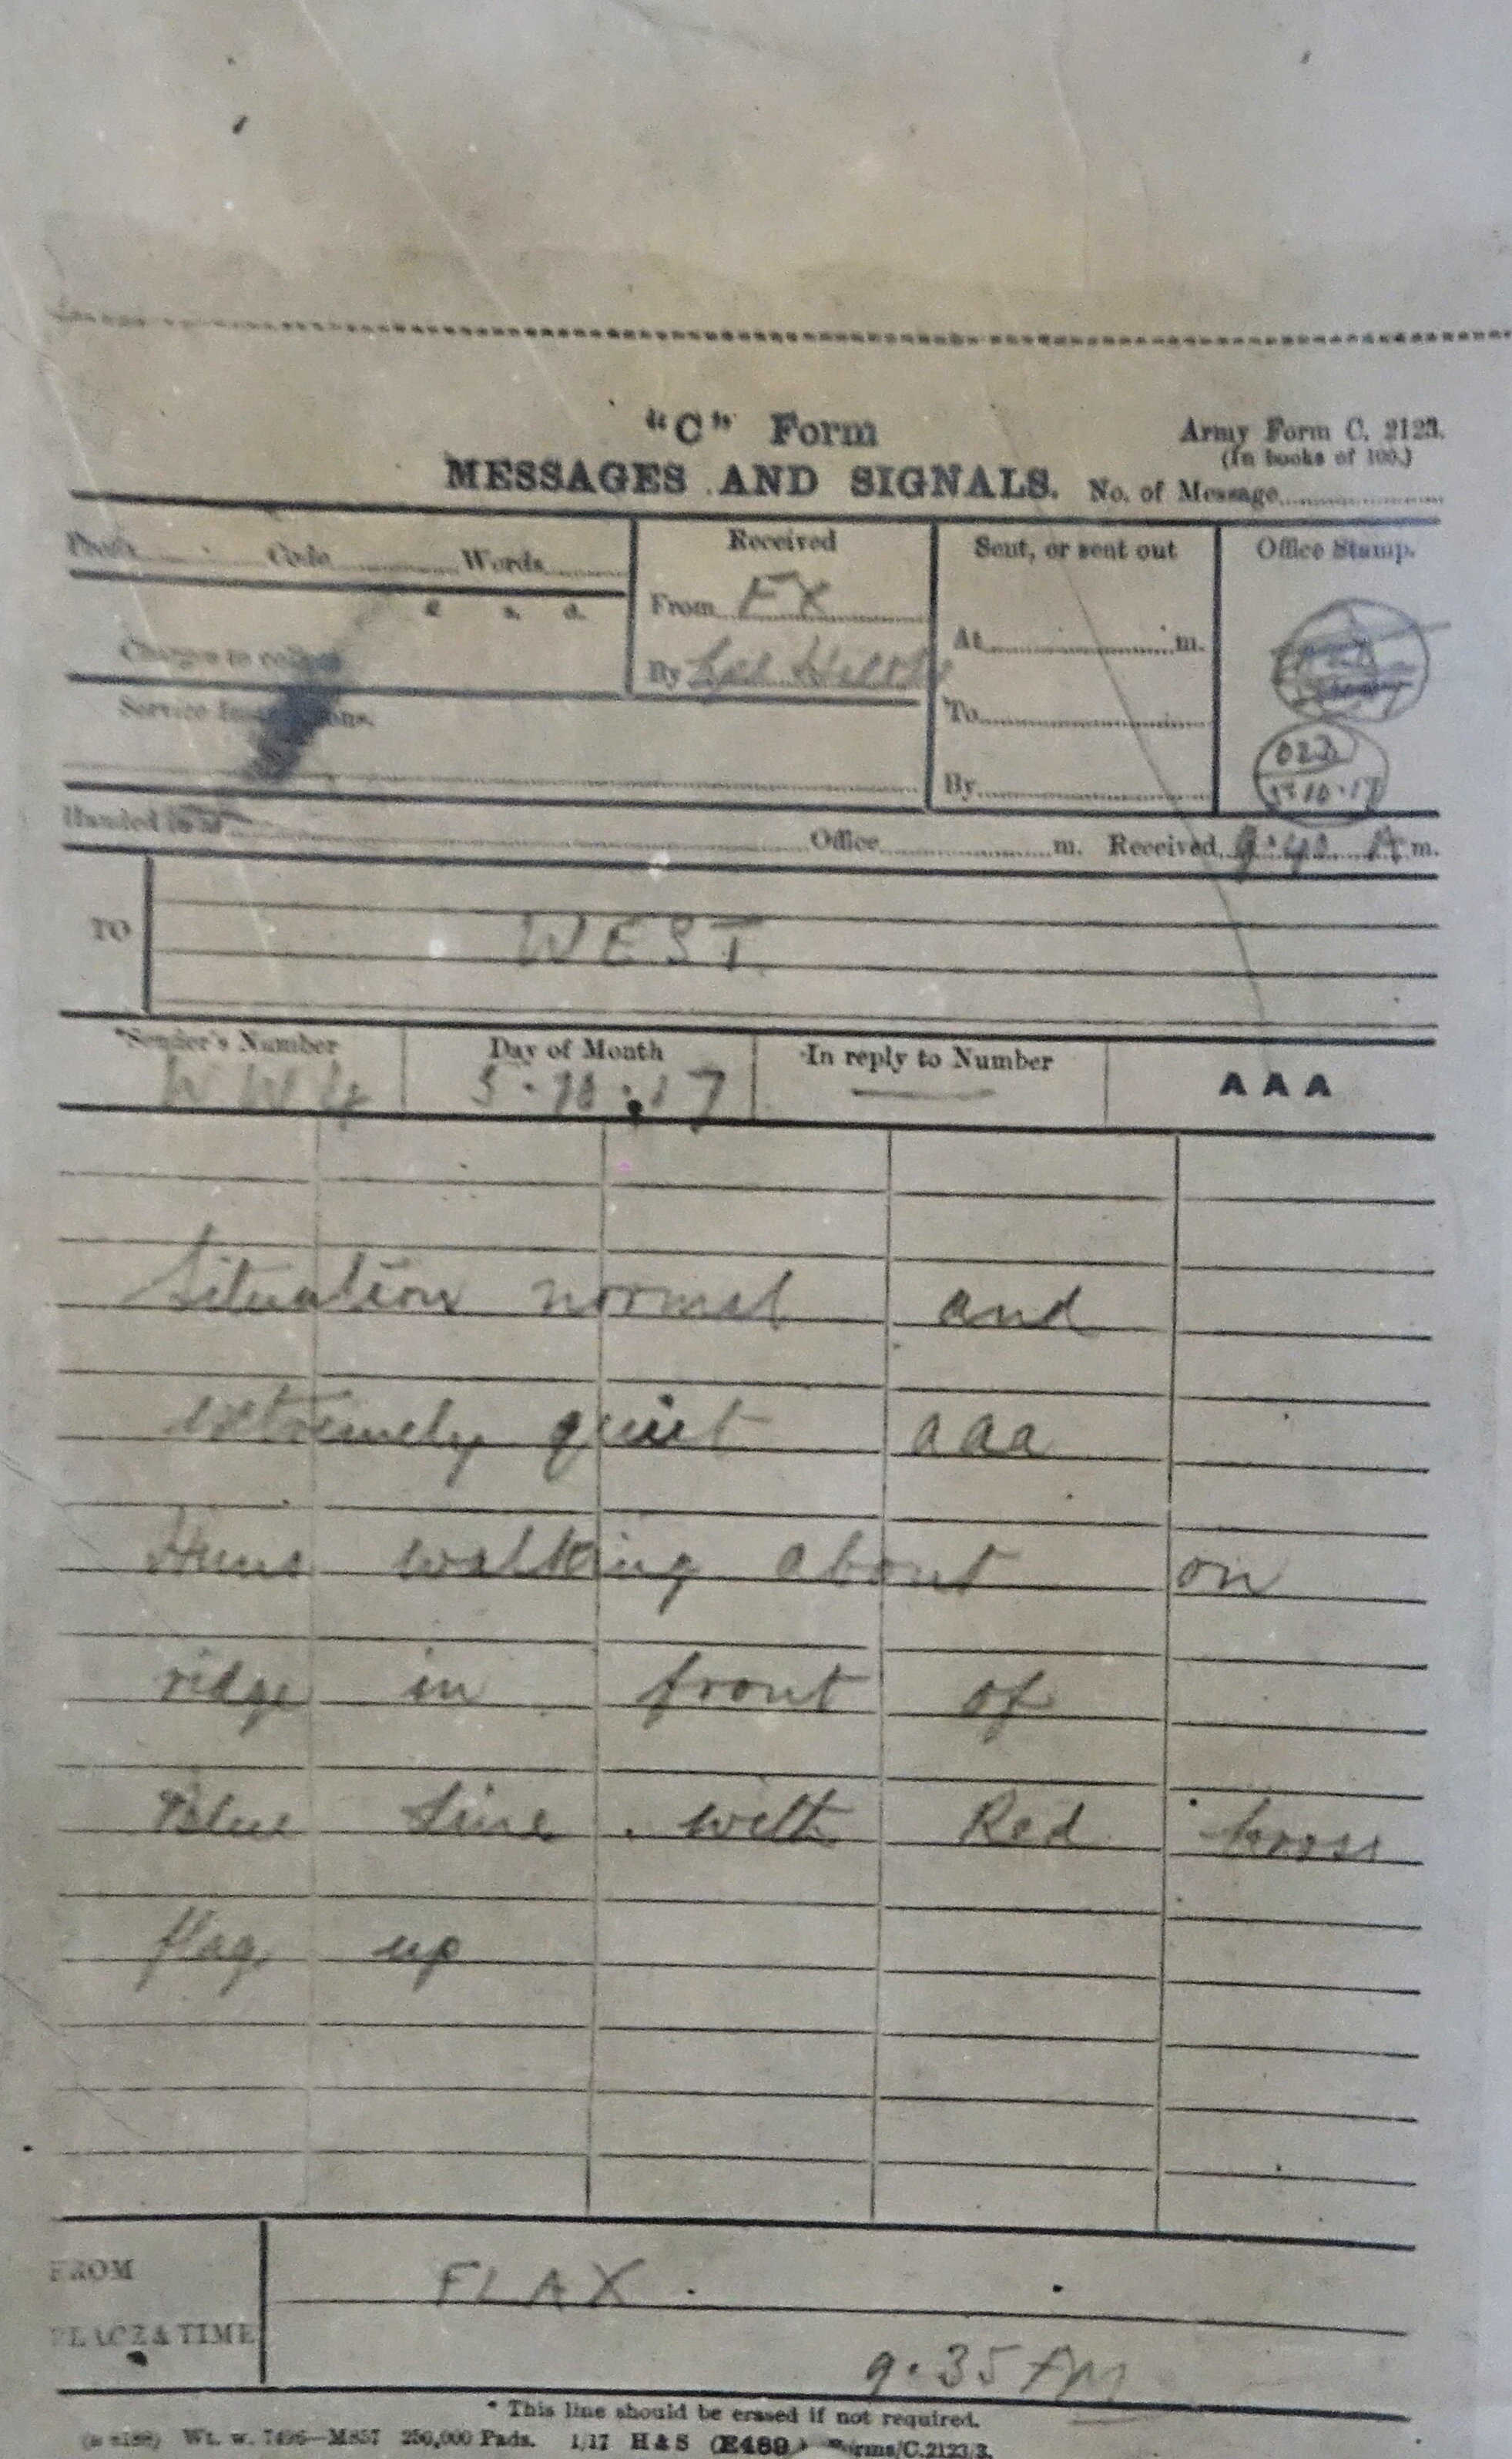 "C" Form
Army Form C. 2123.
(In books of 100.)
MESSAGES AND SIGNALS.
No. of Message
Prefix Code Words
Received
Sent, or sent out
Office Stamp.
£ s. d.
From FX
At m.
Charges to collect
By
Service Instructions.
To
By
Handed in at Office m. Received 9.40 A m.
TO WEST
*Sender's Number
Day of Month
In reply to Number
5.10.17
—
AAA
Situation normal and
extremely quiet aaa
Huns walking about on
ridge in front of
Blue Line . with Red Cross
flag up
FROM FLAX .
PLACE & TIME
9.35 AM
* This line should be erased if not required.
Wt. w. 7496—M857 250,000 Pads. 1/17 H & S (E489.) Forms/C.2123/3.